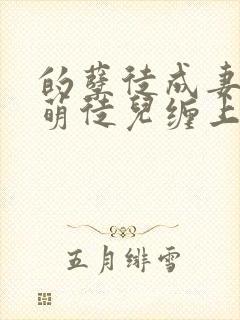 的孽徒成妻
萌徒兒缠上
五月绯雪